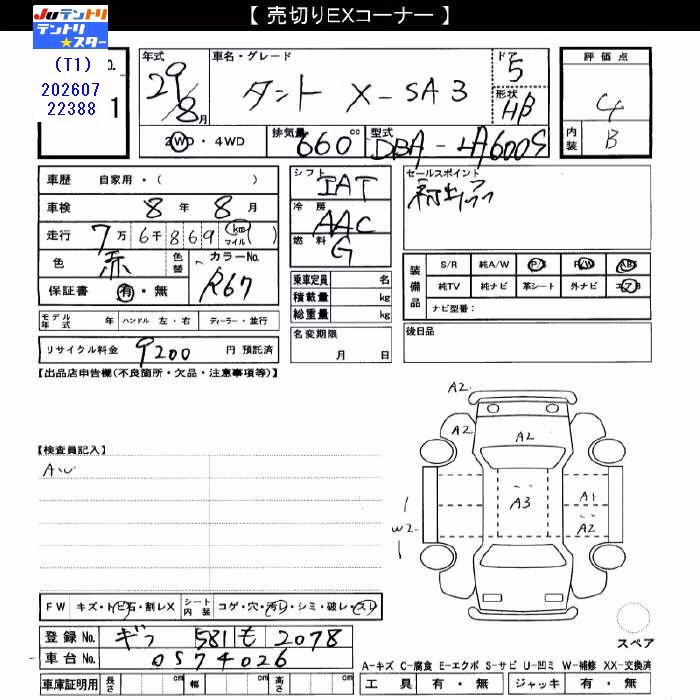 【 売切りEXコーナー 】
Juテントリ
テントリ
★スター
(T1)
202607
22388
1
年式 29 / 8月
車名・グレード タント X-SA3
ドア 5
形状 HB
評価点 4
内装 B
2WD・4WD
排気量 660cc
型式 DBA-LA600S
車歴 自家用・( )
車検 8年 8月
走行 7万6千869 (km マイル)
色 赤 色替
カラーNo. R67
保証書 有・無
シフト IAT
冷房 AAC
燃料 G
乗車定員 名
積載量 kg
総重量 kg
セールスポイント
装備品 S/R 純A/W P/S P/W ABS
純TV 純ナビ 革シート 外ナビ エアB
ナビ型番:
モデル年式 年 ハンドル 左・右 ディーラー・並行
名変期限 月 日
後日品
リサイクル料金 9200 円 預託済
【出品店申告欄(不良箇所・欠品・注意事項等)】
A2
A2
A2
【検査員記入】
AW
A3
A1
W2
A2
FW キズ・トビ石・割レX シート内装 コゲ・穴・汚レ・シミ・破レ・スレ
登録No. ギフ 581 も 2078
車台No. 0574026
スペア
A-キズ C-腐食 E-エクボ S-サビ U-凹ミ W-補修 XX-交換済
車庫証明用 長さ cm 幅 cm 高さ cm
工具 有・無 ジャッキ 有・無